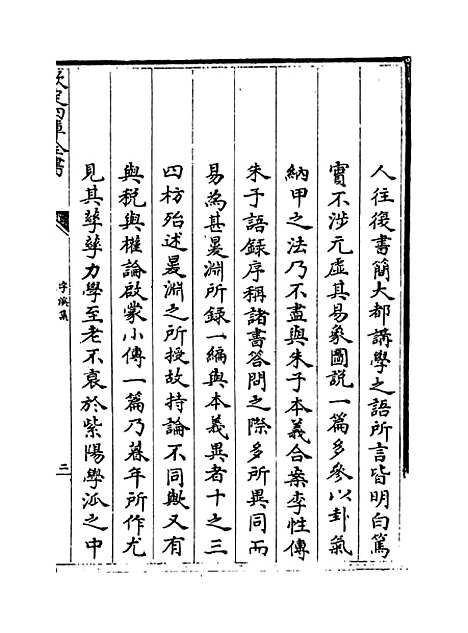 人往復書簡大都講學之語所言皆明白篤
實不涉元虛其易象圖説一篇多參以卦氣
納甲之法乃不盡與朱子本義合案李性傳
朱子語録序稱諸書答問之際多所異同而
易為甚㬊淵所録一編與本義異者十之三
四枋殆述㬊淵之所授故持論不同歟又有
與税與權論啟蒙小傳一篇乃暮年所作尤
見其孳孳力學至老不衰於紫陽學派之中
欽定四庫全書
字溪集
二